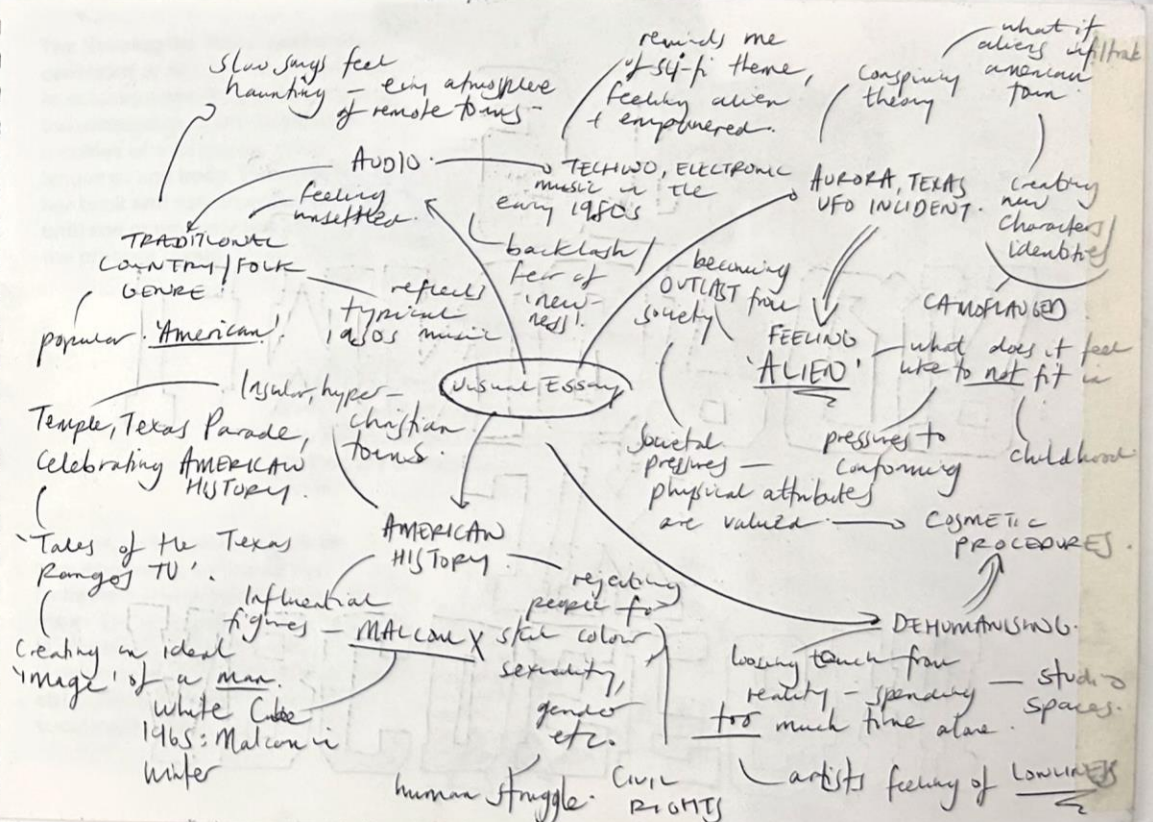 slow songs feel
haunting – eery atmosphere
of remote towns
reminds me
of sci-fi theme,
feeling alien
+ empowered.
conspiracy
theory
what if
aliens infiltrate
american
town
AUDIO.
TECHNO, ELECTRONIC
music in the
early 1980's
feeling
unsettled.
AURORA, TEXAS
UFO INCIDENT.
creating
new
characters/
identities
TRADITIONAL
COUNTRY/FOLK
GENRE!
popular 'American'.
reflects
typical
music
backlash/
fear of
'new-
ness'!
becoming
OUTCAST from
society
FEELING
'ALIEN'
CAMOFLAUGED
what does it feel
like to not fit in
VISUAL ESSAY
Insular, hyper-
christian
towns.
Temple, Texas Parade,
celebrating AMERICAN
HISTORY.
'Tales of the Texas
Ranges TV'.
Creating an ideal
'image' of a man.
societal
pressures –
physical attributes
are valued
pressures to
conforming
childhood
COSMETIC
PROCEDURES.
AMERICAN
HISTORY.
Influential
figures – MALCOLM X
White Cube
1965: Malcolm in
Winter
rejecting
people for
skin colour
sexuality,
gender
etc.
human struggle.
CIVIL
RIGHTS
DEHUMANISING.
loosing touch from
reality – spending
too much time alone.
studio
spaces.
artists feeling of LONLINESS